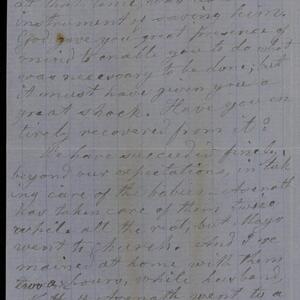 at that time, was
instrument in saving him.
God gave you great presence of
mind to enable you to do what
was necessary to be done; but
it must have given you a
great shock. Have you en
tirely recovered from it?
We have succeeded finely,
beyond our expectations, in tak
ing care of the babies.
has taken care of them twice
while all the rest, but Mayo
went to church. And I re
mained at home with them
two hours, while husband
went to a